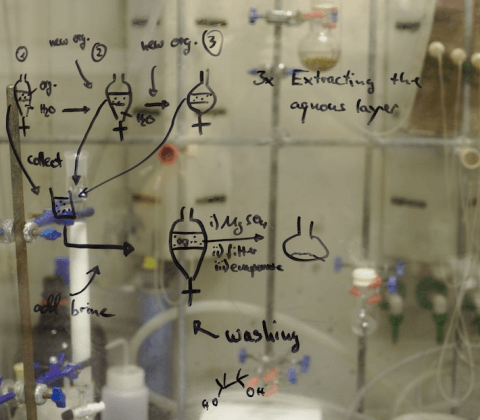 ① new org. ② new org. ③
org.
H₂O
H₂O
3x Extracting the
aqueous layer
collect
org
i) MgSO₄
ii) filter
iii) evaporate
add brine
washing
HO OH